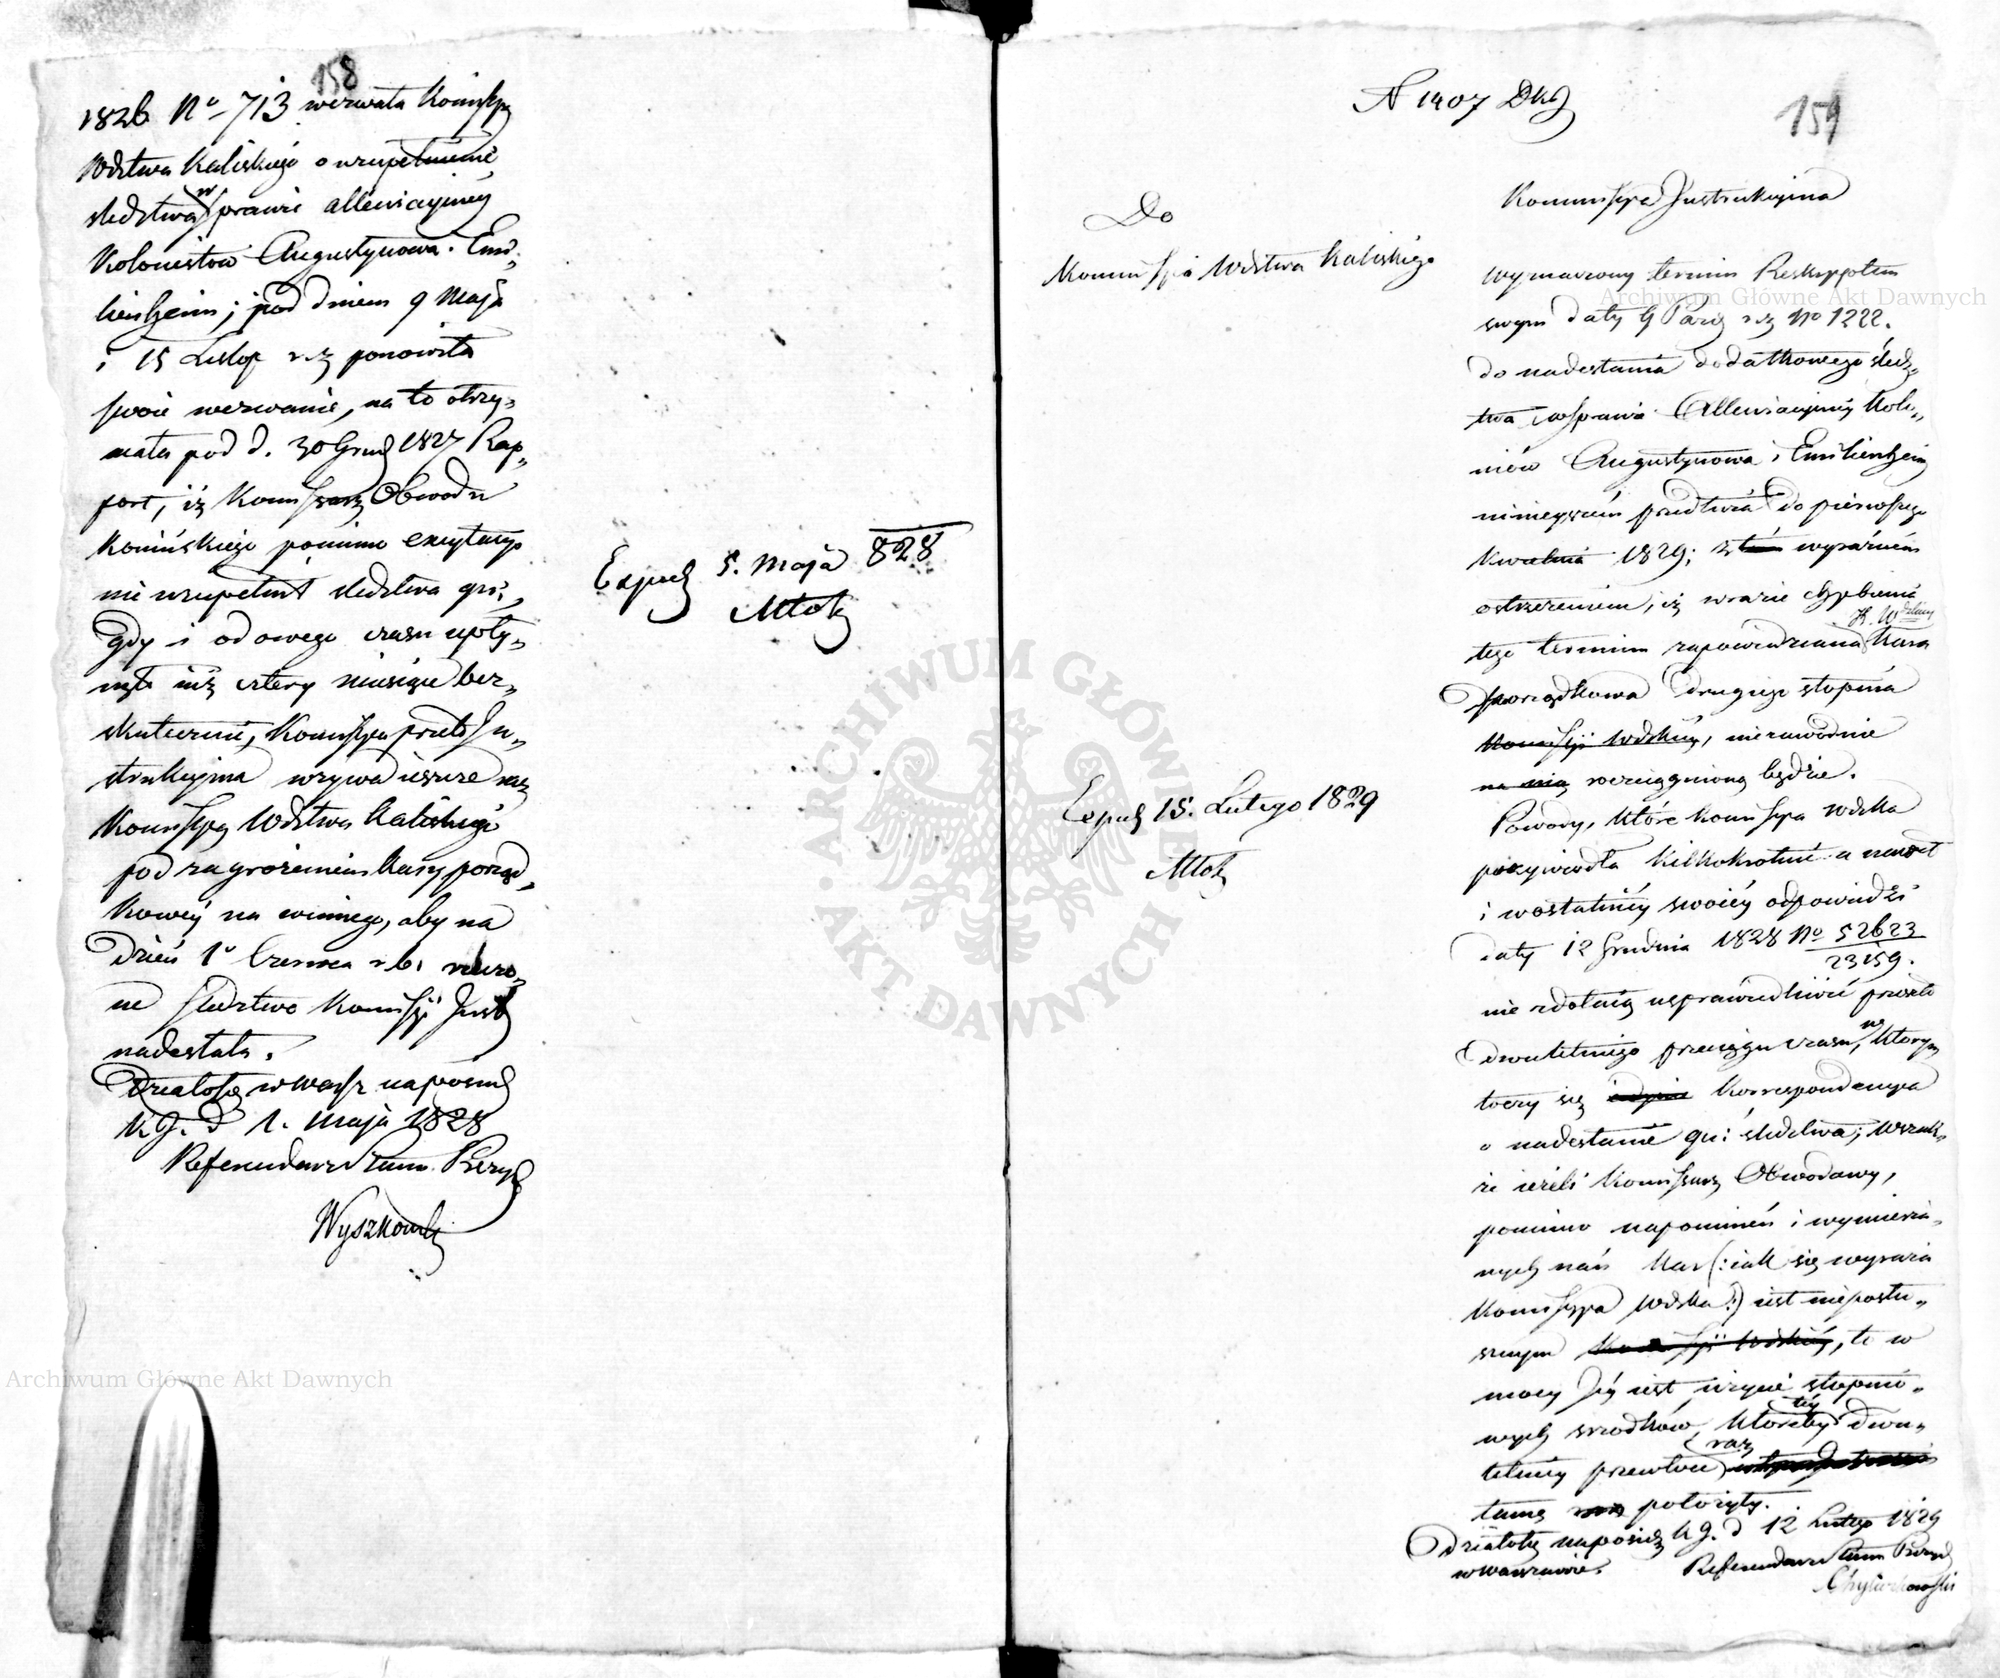 158
1826 No 713 wezwała Kommissyą
Wdztwa Kaliskiego o uzupełnienie
śledztwa w sprawie alleviacyiney
Kolonistów Augustynowa. Emi-
lienheim; pod dniem 9 Maja
i 15 Listop r.z ponowiła
swoie wezwanie, na to otrzy-
mała pod d. 30 Grud 1827 Rap-
port, iż Kommissarz Obwodu
Konińskiego pomimo excytacyi
nie uzupełnił śledztwa
Gdy i od owego czasu upły-
nęło iuż cztery miesiące bez-
skutecznie, Kommissya przeto In-
strukcyina wzywa ieszcze raz
Kommissyą Wdztwa Kaliskiego
pod zagrożeniem kary porząd-
kowey na winnego, aby na
dzień 1o Czerwca r.b.
ne śledztwo Kommissyi Instr
nadesłała.
Działo się w Warsz na posied
K.J. d 1. Maja 1828
Referendarz Stanu Prezyd
Wyszkowski
Exped 5. Maja 828
Młok
N 1407 Dks
159
Kommissya Instrukcyina
Do
Kommissyi Wdztwa Kaliskiego
Wyznaczony termin Reskryptem
swym daty 9 Paźź r.z No 1222.
do nadesłania dodatkowego śledz-
twa w sprawie Alleviacyiney Kolo-
niów Augustynowa i Emilienheim
ninieyszem przedłuża do pierwszego
Kwietnia 1829; z tém wyraźném
ostrzeżeniem, iż w razie chybienia
tego terminu zapowiedziana K. Wdzkiey kara
porządkowa drugiego stopnia
Kommissyi Wdzkiey, niezawodnie
na nią rozciągnioną będzie.
Powody, które Kommissya Wdzka
przywiodła kilkokrotnie a nawet
i w ostatniéy swoiéy odpowiedzi
daty 12 Grudnia 1828 No 52623
23159.
nie zdołaią usprawiedliwić przeszło
dwuletniego przeciągu czasu, w którym
toczy się korrespondencya
o nadesłanie śledztwa; wszak-
że ieżeli Kommissarz Obwodowy,
pomimo napomnień i wymierzo-
nych nań kar (: iak się wyraża
Kommissya Wdzka :) iest nieposłu-
sznym Kommissyi Wdzkiéy, to w
mocy Jéy iest użycie stopnio-
wych srodków, któreby téy dwu-
letniéy przewłoce raz
tamę położyły.
Działo się na posiedz K J. d 12 Lutego 1829
w Warszawie. Referendarz Stanu Prezyd
Chyliczkowski
Exped 15. Lutego 1829
Młok
ARCHIWUM GŁÓWNE AKT DAWNYCH
Archiwum Główne Akt Dawnych
Archiwum Główne Akt Dawnych